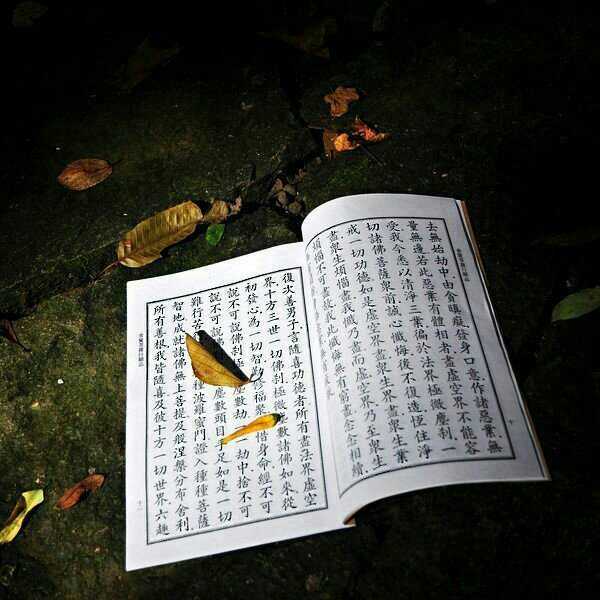 去無始劫中.由貪瞋癡.發身口意.作諸惡業.無
量無邊.若此惡業有體相者.盡虛空界不能容
受.我今悉以清淨三業.徧於法界極微塵剎.一
切諸佛菩薩眾前.誠心懺悔.後不復造.恆住淨
戒一切功德.如是虛空界盡.眾生界盡.眾生業
盡.眾生煩惱盡.我懺乃盡.而虛空界乃至眾生
煩惱不可盡故.我此懺悔無有窮盡.念念相續.
復次善男子.言隨喜功德者.所有盡法界虛空
界.十方三世一切佛剎極微塵數諸佛如來.從
初發心.為一切智.勤修福聚.惜身命.經不可
說不可說佛剎塵數劫.一一劫中.捨不可
說不可說塵數頭目手足.如是一切
難行苦種種波羅蜜門.證入種種菩薩
智地.成就諸佛無上菩提.及般涅槃.分布舍利.
所有善根.我皆隨喜.及彼十方一切世界.六趣